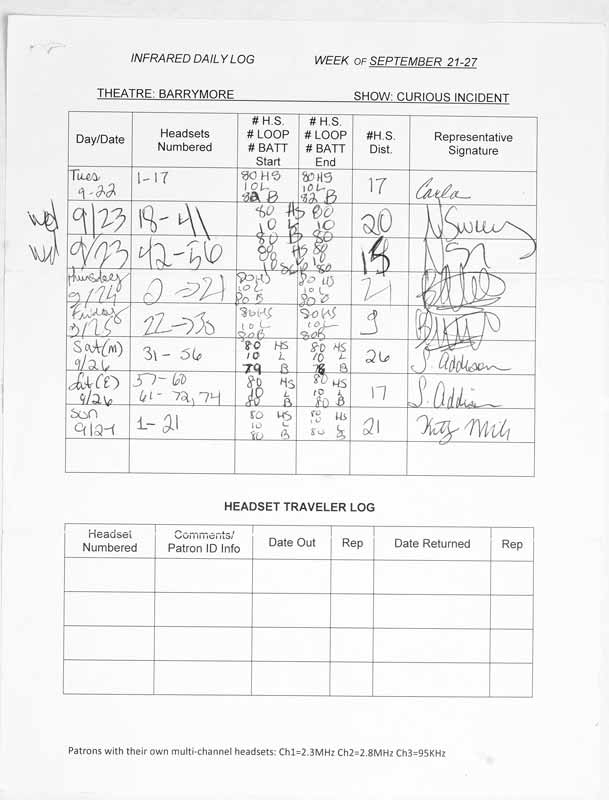 INFRARED DAILY LOG WEEK OF SEPTEMBER 21-27
THEATRE: BARRYMORE SHOW: CURIOUS INCIDENT
Day/Date
Headsets
Numbered
# H.S.
# LOOP
# BATT
Start
# H.S.
# LOOP
# BATT
End
#H.S.
Dist.
Representative
Signature
Tues
9-22
1-17
80 HS
10 L
B
80 HS
10 L
82 B
17
Carla
wed
9/23
18-41
80 HS 80
10 L 10
80 B 80
20
wed
9/23
42-56
80 HS 80
L 10
80
Thursday
9/24
80 HS
10 L
80 B
80 HS
10 L
80 B
21
Friday
22→30
80HS
10 L
80B
80 HS
10 L
80B
9
Sat(M)
9/26
31-56
80 HS
10 L
79 B
80 HS
10 L
B
26
S. Addison
Sat(E)
9/26
57-60
61-72,74
80 HS
10 L
80 B
80 HS
10 L
80 B
17
S. Addison
Sun
1-21
80 HS
10 L
80 B
80 HS
10 L
80 B
21
HEADSET TRAVELER LOG
Headset
Numbered
Comments/
Patron ID Info
Date Out
Rep
Date Returned
Rep
Patrons with their own multi-channel headsets: Ch1=2.3MHz Ch2=2.8MHz Ch3=95KHz